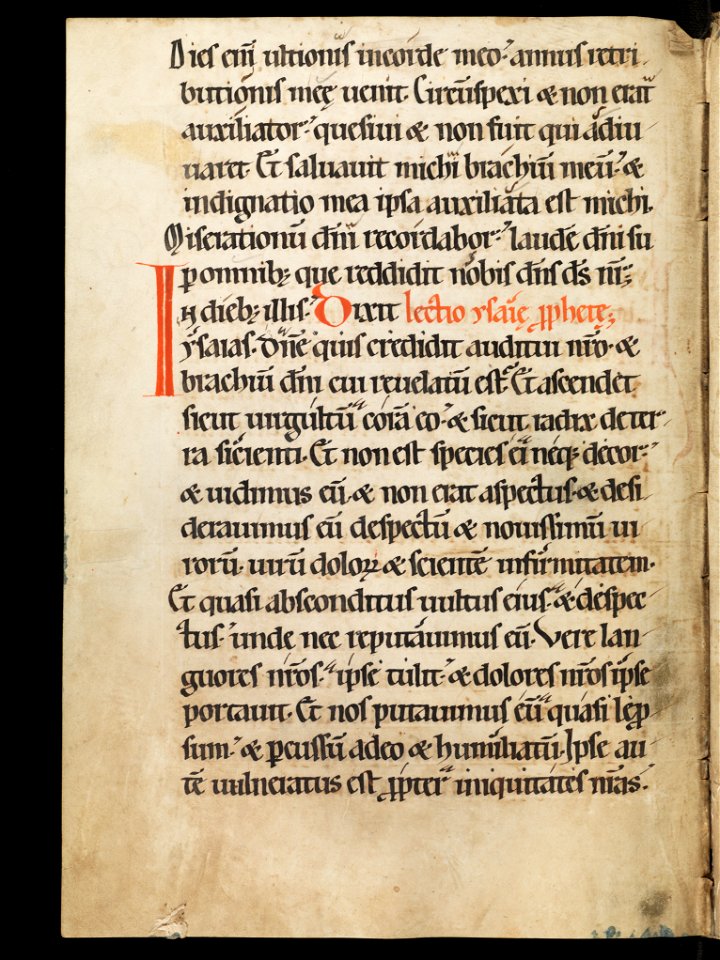 Dies eni̅ ultionis in corde meo. annus retri-
butionis meę uenit. Circu̅spexi & non erat
auxiliator. quesiui & non fuit qui adiu-
uaret. Et saluauit michi brachiu̅ meu̅. &
indignatio mea ipsa auxiliata est michi.
Miserationu̅ dn̅i recordabor. laude̅ dn̅i su
ꝑ omnib; que reddidit nobis dn̅s ds̅ nr̅;
In dieb; illis. Dixit lectio ysaię ꝓphetę;
ysaias. Dn̅e quis credidit auditui nr̅o. &
brachiu̅ dn̅i cui reuelatu̅ est. Et ascendet
sicut uirgultu̅ cora̅ eo. & sicut radix de ter-
ra sicienti. Et non est species ei neq; decor.
& uidimus eu̅. & non erat aspectus. & desi-
derauimus eu̅ despectu̅ & nouissimu̅ ui-
roru̅. uiru̅ doloꝝ & sciente̅ infirmitatem.
Et quasi absconditus uultus eius. & despec-
tus. unde nec reputauimus eu̅. Vere lan-
guores nr̅os. ipse tulit. & dolores nr̅os ipse
portauit. Et nos putauimus eu̅ quasi lepro-
sum. & ꝑcussu̅ a deo & humiliatu̅. Ipse au-
te̅ uulneratus est ꝓpter iniquitates nr̅as.